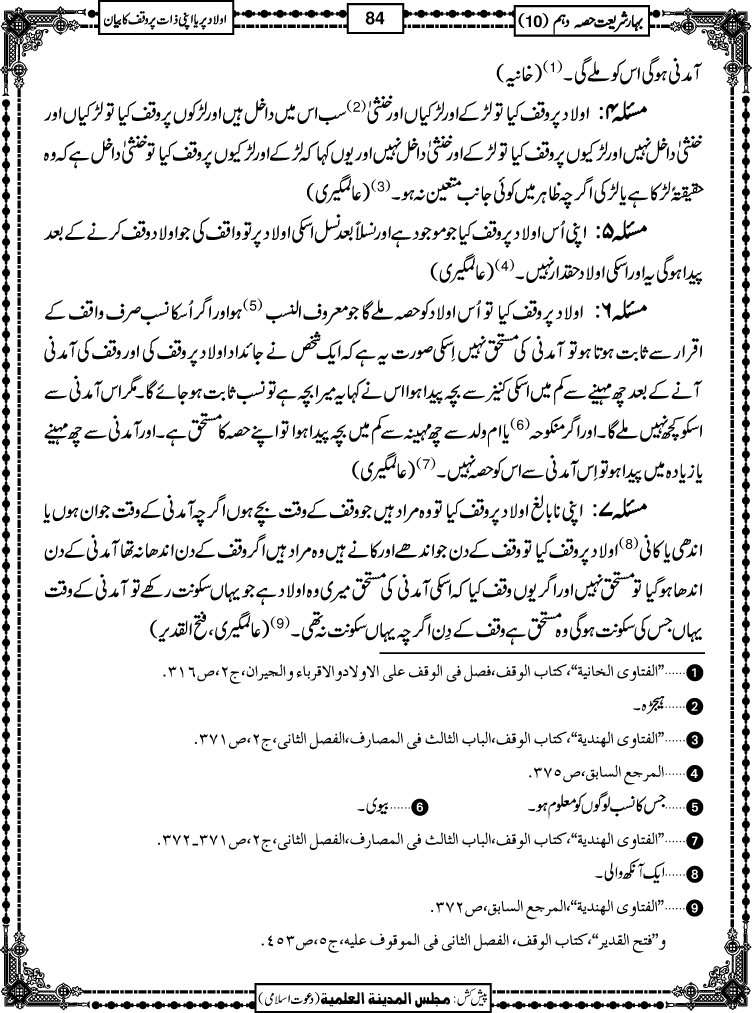 بہار شریعت حصہ دہم (10)
84
اولاد پر یا اپنی ذات پر وقف کا بیان
آمدنی ہوگی اس کو ملے گی۔(1) (خانیہ)
مسئلہ ۴: اولاد پر وقف کیا تو لڑکے اور لڑکیاں اور خنثیٰ(2) سب اس میں داخل ہیں اور لڑکوں پر وقف کیا تو لڑکیاں اور
خنثیٰ داخل نہیں اور لڑکیوں پر وقف کیا تو لڑکے اور خنثیٰ داخل نہیں اور یوں کہا کہ لڑکے اور لڑکیوں پر وقف کیا تو خنثیٰ داخل ہے کہ وہ
حقیقۃً لڑکا ہے یا لڑکی اگرچہ ظاہر میں کوئی جانب متعین نہ ہو۔(3) (عالمگیری)
مسئلہ ۵: اپنی اُس اولاد پر وقف کیا جو موجود ہے اور نسلاً بعد نسل اسکی اولاد پر تو واقف کی جو اولاد وقف کرنے کے بعد
پیدا ہوگی یہ اور اسکی اولاد حقدار نہیں۔(4) (عالمگیری)
مسئلہ ۶: اولاد پر وقف کیا تو اُس اولاد کو حصہ ملے گا جو معروف النسب(5) ہو اور اگر اُسکا نسب صرف واقف کے
اقرار سے ثابت ہوتا ہو تو آمدنی کی مستحق نہیں اِسکی صورت یہ ہے کہ ایک شخص نے جائداد اولاد پر وقف کی اور وقف کی آمدنی
آنے کے بعد چھ مہینے سے کم میں اسکی کنیز سے بچہ پیدا ہوا اس نے کہا یہ میرا بچہ ہے تو نسب ثابت ہو جائے گا۔ مگر اس آمدنی سے
اسکو کچھ نہیں ملے گا۔ اور اگر منکوحہ(6) یا ام ولد سے چھ مہینہ سے کم میں بچہ پیدا ہوا تو اپنے حصہ کا مستحق ہے۔ اور آمدنی سے چھ مہینے
یا زیادہ میں پیدا ہو تو اِس آمدنی سے اس کو حصہ نہیں۔(7) (عالمگیری)
مسئلہ ۷: اپنی نابالغ اولاد پر وقف کیا تو وہ مراد ہیں جو وقف کے وقت بچے ہوں اگرچہ آمدنی کے وقت جوان ہوں یا
اندھی یا کانی(8) اولاد پر وقف کیا تو وقف کے دن جو اندھے اور کانے ہیں وہ مراد ہیں اگر وقف کے دن اندھا نہ تھا آمدنی کے دن
اندھا ہو گیا تو مستحق نہیں اور اگر یوں وقف کیا کہ اسکی آمدنی کی مستحق میری وہ اولاد ہے جو یہاں سکونت رکھے تو آمدنی کے وقت
یہاں جس کی سکونت ہوگی وہ مستحق ہے وقف کے دِن اگرچہ یہاں سکونت نہ تھی۔(9) (عالمگیری، فتح القدیر)
1......”الفتاوى الخانية“، كتاب الوقف، فصل فى الوقف على الاولادوالاقرباء والجيران، ج٢، ص٣١٦.
2......ہیجڑہ۔
3......”الفتاوى الهندية“، كتاب الوقف، الباب الثالث فى المصارف، الفصل الثانى، ج٢، ص٣٧١.
4......المرجع السابق، ص٣٧٥.
5......جس کا نسب لوگوں کو معلوم ہو۔ 6......بیوی۔
7......”الفتاوى الهندية“، كتاب الوقف، الباب الثالث فى المصارف، الفصل الثانى، ج٢، ص٣٧١۔٣٧٢.
8......ایک آنکھ والی۔
9......”الفتاوى الهندية“، المرجع السابق، ص٣٧٢.
و”فتح القدير“، كتاب الوقف، الفصل الثانى فى الموقوف عليه، ج٥، ص٤٥٣.
پیش کش: مجلس المدينة العلمية (دعوت اسلامی)